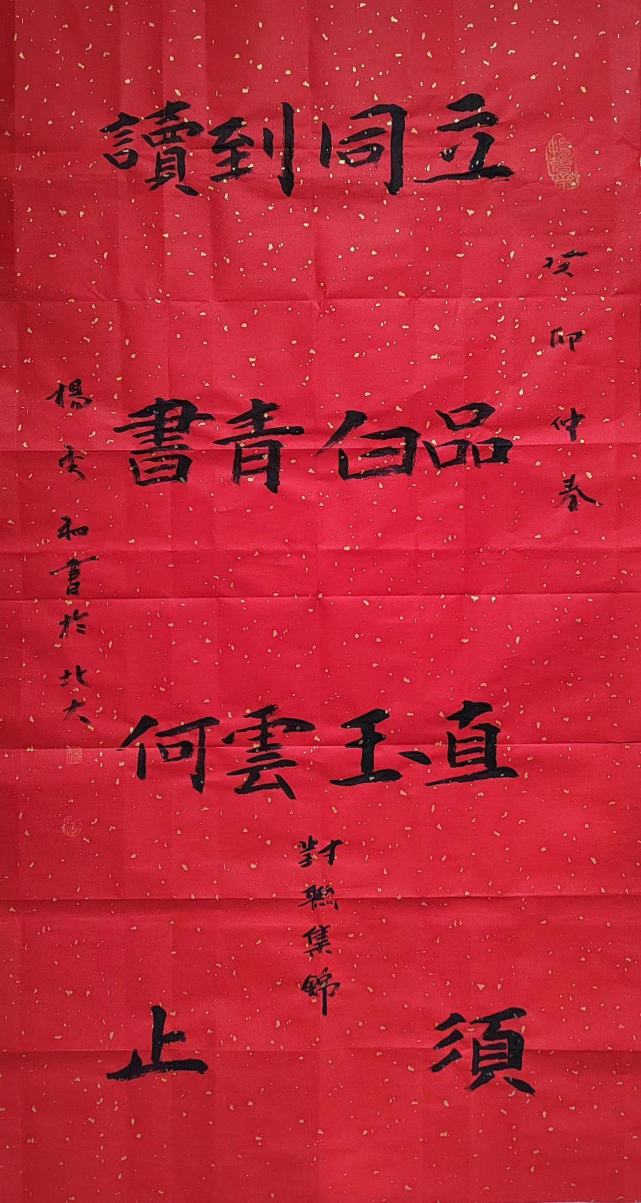 癸卯仲春
立品直須
同白玉
讀書何止
到青雲
對聯集錦
楊 和書於北大